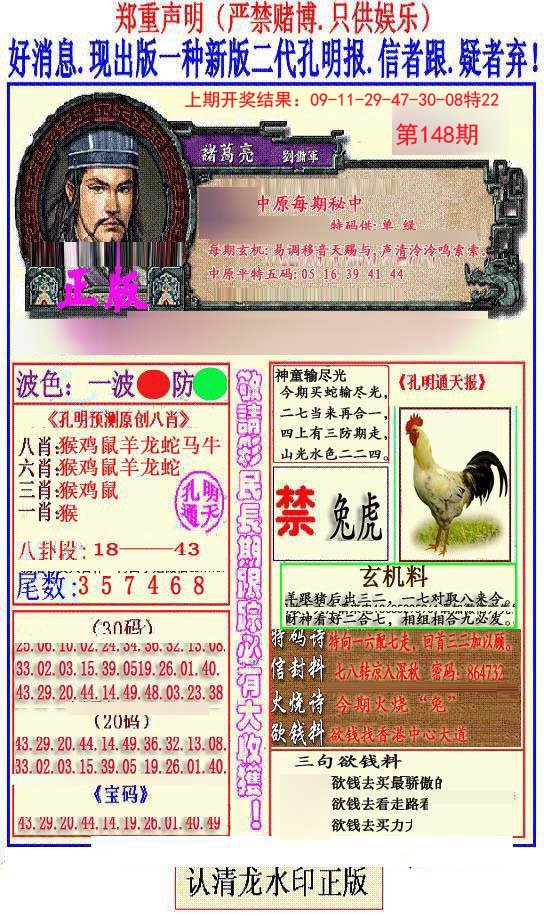 郑重声明（严禁赌博.只供娱乐）
好消息.现出版一种新版二代孔明报.信者跟.疑者弃!
上期开奖结果：09-11-29-47-30-08特22
第148期
諸葛亮
中原每期秘中
特码供:单 绿
每期玄机:易调移音天赐与,声清泠泠鸣索索。
中原平特五码:05 16 39 41 44
正版
波色：一波 防
《孔明预测原创八肖》
八肖:猴鸡鼠羊龙蛇马牛
六肖:猴鸡鼠羊龙蛇
三肖:猴鸡鼠
一肖:猴
孔明
通天
八卦段:18——43
尾数:3 5 7 4 6 8
(30码)
25.06.10.02.24.34.36.32.13.08.
33.02.03.15.39.0519.26.01.40.
43.29.20.44.14.49.48.03.23.38
(20码)
43.29.20.44.14.49.36.32.13.08.
33.02.03.15.39.05 19.26.01.40.
《宝码》
43.29.20.44.14.19.26.01.40.49
敬請彩民長期跟踪必有大收獲！
神童输尽光
今期买蛇输尽光,
二七当来再合一,
四上有三防期走,
山光水色二二四。
《孔明通天报》
禁 兔虎
玄机料
羊跟猪后出三二、一七对取八来合
财神看好二合七，相组相合九必发。
特码诗 特向一六配七走，回首三三加以顾。
信封料 七八转凉入深秋 密码：864732
火烧诗 今期火烧“兔”
欲钱料 欲钱找香港中心大道
三句欲钱料
欲钱去买最骄傲的
欲钱去看走路看
欲钱去买力
认清龙水印正版